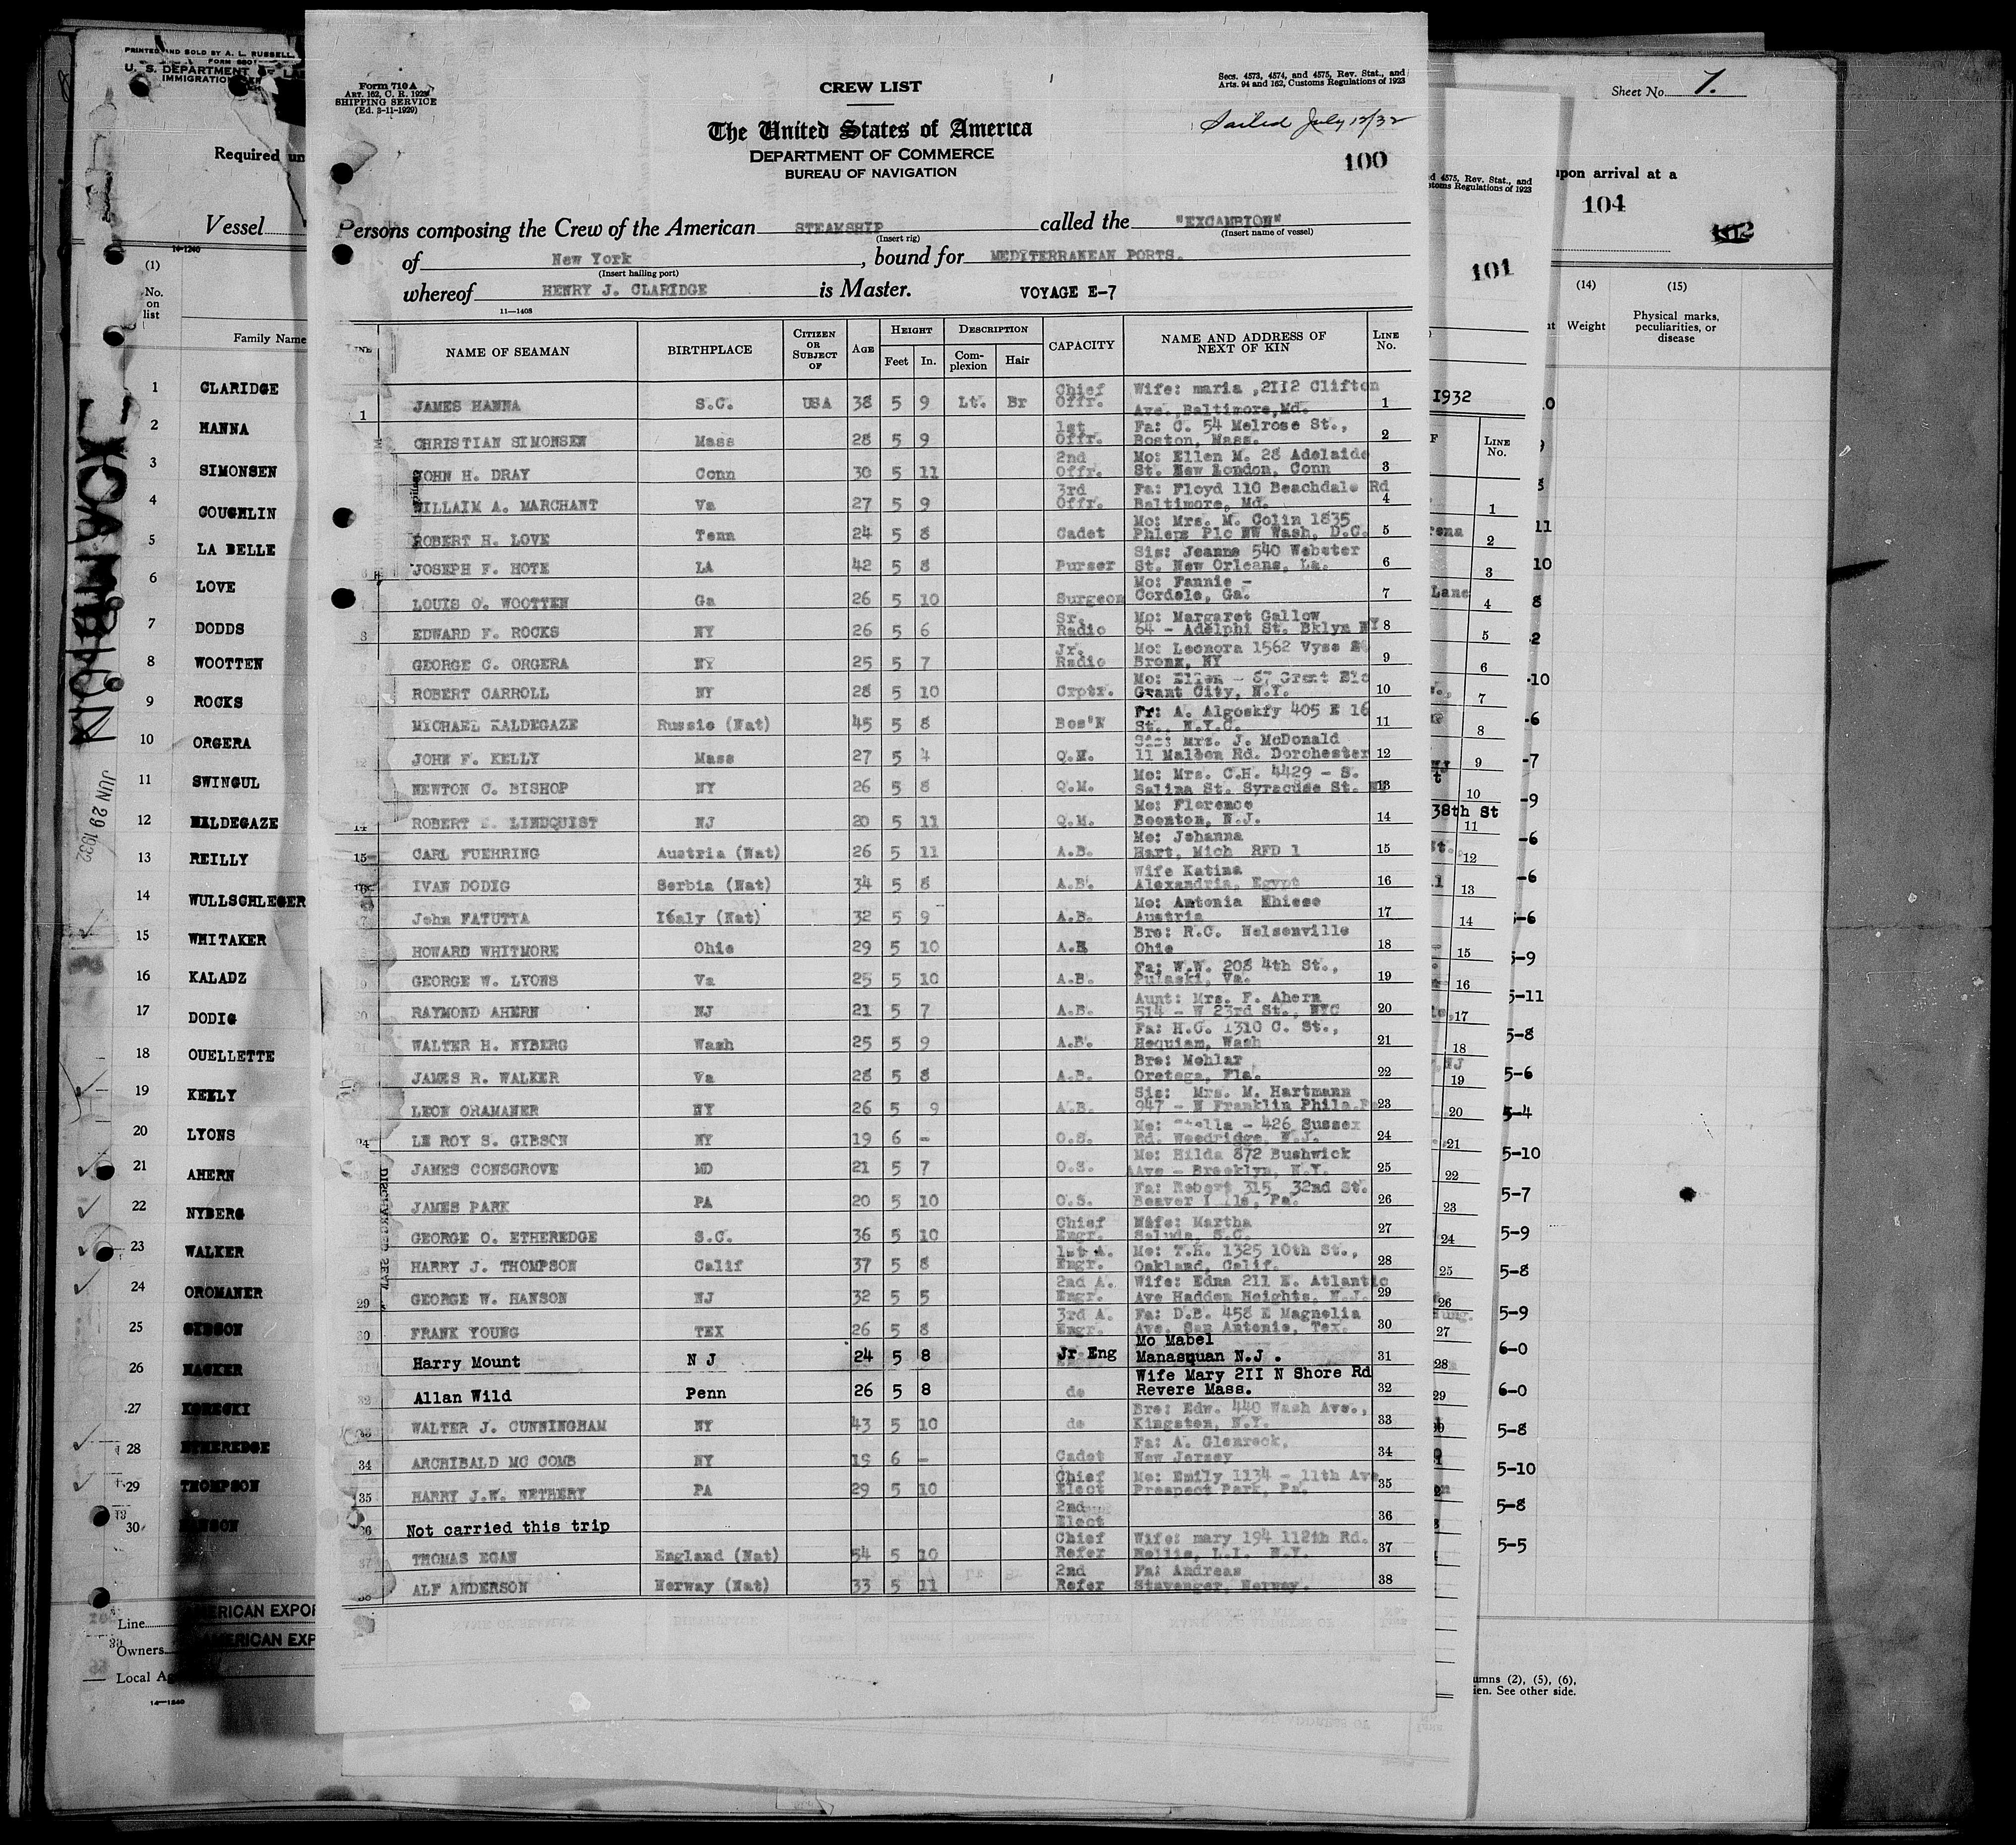 PRINTED AND SOLD BY A. L. RUSSELL
FORM 680
U. S. DEPARTMENT
IMMIGRATION
Required un
Vessel
14-1240
(1)
No.
on
list
Family Name
1 CLARIDGE
2 HANNA
3 SIMONSEN
4 COUGHLIN
5 LA BELLE
6 LOVE
7 DODDS
8 WOOTTEN
9 ROCKS
10 ORGERA
11 SWINGUL
12 HALDEGAZE
13 REILLY
14 WULLSCHLEGER
15 WHITAKER
16 KALADZ
17 DODIG
18 OUELLETTE
19 KEELY
20 LYONS
21 AHERN
22 NYBERG
23 WALKER
24 OROMANER
25 GIBSON
26 HACKER
27
28 ETHEREDGE
29 THOMPSON
30 HANSON
Line AMERICAN EXPOR
Owners AMERICAN EXP
Local Ag
14-1240
EXCAMBION
JUN 29 1932
Form 710 A
ART. 162, C. R. 1923
SHIPPING SERVICE
(Ed. 3-11-1929)
CREW LIST
Secs. 4573, 4574, and 4575, Rev. Stat., and
Arts. 94 and 162, Customs Regulations of 1923
The United States of America
Sailed July 12/32
DEPARTMENT OF COMMERCE
BUREAU OF NAVIGATION
100
Persons composing the Crew of the American STEAMSHIP called the "EXCAMBION"
(Insert rig) (Insert name of vessel)
of New York, bound for MEDITERRANEAN PORTS.
(Insert hailing port)
whereof HENRY J. CLARIDGE is Master. VOYAGE E-7
11-1408
LINE NAME OF SEAMAN BIRTHPLACE CITIZEN OR SUBJECT OF AGE HEIGHT Feet In. DESCRIPTION Complexion Hair CAPACITY NAME AND ADDRESS OF NEXT OF KIN LINE No.
1 JAMES HANNA S.C. USA 38 5 9 Lt. Br Chief Offr. Wife: maria ,2112 Clifton Ave., Baltimore, Md. 1
CHRISTIAN SIMONSEN Mass 28 5 9 1st Offr. Fa: C. 54 Melrose St., Boston, Mass. 2
JOHN H. DRAY Conn 30 5 11 2nd Offr. Mo: Ellen M. 28 Adelaide St. New London, Conn 3
WILLAIM A. MARCHANT Va 27 5 9 3rd Offr. Fa: Floyd 110 Beachdale Rd Baltimore, Md. 4
ROBERT H. LOVE Tenn 24 5 8 Cadet Mo: Mrs. M. Colin 1835 Phleps Plc NW Wash, D.C. 5
JOSEPH F. HOTE LA 42 5 8 Purser Sis: Jeanne 540 Webster St. New Orleans, La. 6
LOUIS O. WOOTTEN Ga 26 5 10 Surgeon Mo: Fannie - Cordele, Ga. 7
8 EDWARD F. ROCKS NY 26 5 6 Sr. Radio Mo: Margaret Gallow 64 - Adelphi St. Bklyn NY 8
GEORGE C. ORGERA NY 25 5 7 Jr. Radio Mo: Leonora 1562 Vyse Bronx, NY 9
10 ROBERT CARROLL NY 28 5 10 Crptr. Mo: Ellen - 67 Grant Grant City, N.Y. 10
MICHAEL KALDEGAZE Russie (Nat) 45 5 8 Bos'N Fr: A. Algoskfy 405 E 16 St., N.Y.C. 11
12 JOHN F. KELLY Mass 27 5 4 Q.M. Sis: Mrs. J. McDonald 11 Rd. Dorchester 12
NEWTON C. BISHOP NY 26 5 8 Q.M. Mo: Mrs. C.H. 4429 - S. Salina St. Syracuse St. NY 13
14 ROBERT LINDQUIST NJ 20 5 11 Q.M. Mo: Florence Boonton, N.J. 14
15 CARL FUEHRING Austria (Nat) 26 5 11 A.B. Mo: Johanna Hart, Mich RFD 1 15
16 IVAN DODIG Serbia (Nat) 34 5 8 A.B. Wife Katina Alexandria, Egypt 16
17 John FATUTTA Italy (Nat) 32 5 9 A.B. Mo: Antonia Khiese Austria 17
HOWARD WHITMORE Ohio 29 5 10 A.B Bro: R.C. Nelsenville Ohio 18
19 GEORGE W. LYONS Va 25 5 10 A.B. Fa: W.W. 208 4th St., Pulaski, Va. 19
20 RAYMOND AHERN NJ 21 5 7 A.B. Aunt: Mrs. F. Ahern 514 - W 23rd St., NYC 20
21 WALTER H. NYBERG Wash 25 5 9 A.B. Fa: H.G. 1310 C. St., Hoquiam, Wash 21
JAMES R. WALKER Va 28 5 8 A.B. Bro: Mohlar Oretega, Fla. 22
LEON ORAMANER NY 26 5 9 A.B. Sis: Mrs. M. Hartmann 947 - N Franklin Phila. 23
24 LE ROY S. GIBSON NY 19 6 - O.S. Mo: Stella - 426 Sussex Rd. Woodridge, N.J. 24
JAMES CONSGROVE MD 21 5 7 O.S. Mo: Hilda 872 Bushwick Ave - Brooklyn, N.Y. 25
JAMES PARK PA 20 5 10 O.S. Fa: Robert 315 32nd St. Beaver Pa. 26
GEORGE O. ETHEREDGE S.C. 36 5 10 Chief Engr. Wife: Martha Saluda, S.C. 27
28 HARRY J. THOMPSON Calif 37 5 8 1st A. Engr. Mo: T.H. 1325 10th St., Oakland, Calif. 28
29 GEORGE W. HANSON NJ 32 5 5 2nd A. Engr. Wife: Edna 211 E. Atlantic Ave Hadden Heights, N.J. 29
30 FRANK YOUNG TEX 26 5 8 3rd A. Engr. Fa: D.B. 458 E Magnolia Ave. San Antonio, Tex. 30
Harry Mount N J 24 5 8 Jr Eng Mo Mabel Manasquan N.J . 31
32 Allan Wild Penn 26 5 8 do Wife Mary 2II N Shore Rd Revere Mass. 32
33 WALTER J. CUNNINGHAM NY 43 5 10 do Bro: Edw. 440 Wash Ave., Kingston, N.Y. 33
34 ARCHIBALD MC COMB NY 19 6 - Cadet Fa: A. Glenrock, New Jersey 34
35 HARRY J.W. NETHERY PA 29 5 10 Chief Elect Mo: Emily 1134 - 11th Ave Prospect Park, Pa. 35
36 Not carried this trip 2nd Elect 36
37 THOMAS EGAN England (Nat) 54 5 10 Chief Refer Wife: mary 194 112th Rd. Hollis, L.I. N.Y. 37
38 ALF ANDERSON Norway (Nat) 33 5 11 2nd Refer Fa: Andreas Stavanger, Norway. 38
d 4575, Rev. Stat., and
stoms Regulations of 1923
101
1932
LINE No.
1
2
3
Lane 4
5
6
7
8
9
10
38th St
11
12
13
14
15
16
17
18
NJ 19
20
21
22
23
24
25
26
27
28
29
Sheet No. 7.
upon arrival at a
104
102
(14) (15)
Weight Physical marks, peculiarities, or disease
11
10
8
5-9
5-11
5-8
5-6
5-4
5-10
5-7
5-9
5-8
5-9
6-0
6-0
5-8
5-10
5-8
5-5
umns (2), (5), (6),
ien. See other side.